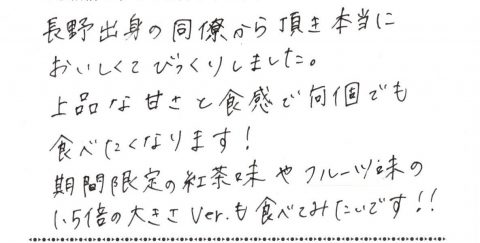 長野出身の同僚から頂き本当に
おいしくてびっくりしました。
上品な甘さと食感で何個でも
食べたくなります!
期間限定の紅茶味やフルーツ味の
1.5倍の大きさVer.も食べてみたいです!!